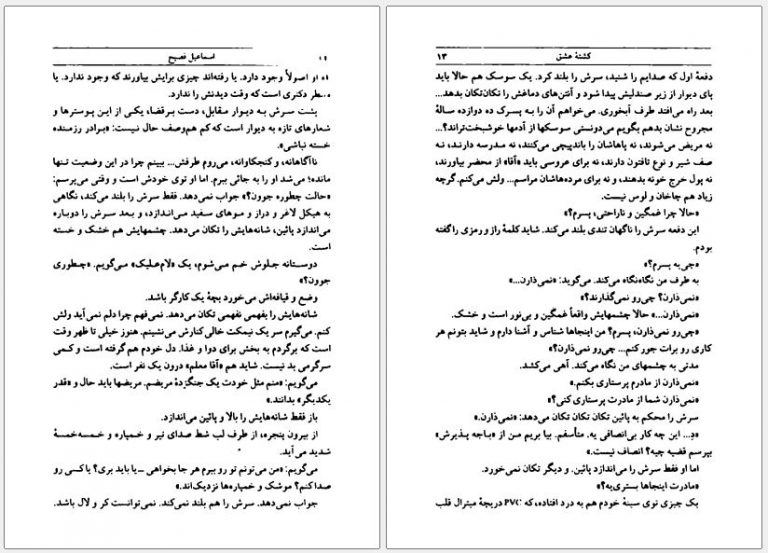 اسماعیل فصیح
او اصولاً وجود دارد. یا رفته‌اند چیزی برایش بیاورند که وجود ندارد. یا
منتظر دکتری است که وقت دیدنش را ندارد.
پشت سرش به دیوار مقابل، دست برقضا، یکی از این پوسترها و
شعارهای تازه به دیوار است که کم هم‌وصف حال نیست: «برادر رزمنده
خسته نباشی».
ناآگاهانه، و کنجکاوانه، می‌روم طرفش... ببینم چرا در این وضعیت تنها
مانده؛ می‌شد او را به جائی ببرم. اما او توی خودش است و وقتی می‌پرسم:
«حالت چطوره جوون؟» جواب نمی‌دهد. فقط سرش را بلند می‌کند، نگاهی
به هیکل لاغر و دراز و موهای سفید می‌اندازد، و بعد سرش را دوباره
می‌اندازد پائین، شانه‌هایش را تکان می‌دهد. چشمهایش هم خشک و خسته
است.
دوستانه جلوش خم می‌شوم، یک «لام‌علیک» می‌گویم. «چطوری
جوون؟»
وضع و قیافه‌اش می‌خورد بچهٔ یک کارگر باشد.
شانه‌هایش را بفهمی نفهمی تکان می‌دهد. نمی‌فهم چرا دلم نمی‌آید ولش
کنم. می‌گیرم سر یک نیمکت خالی کنارش می‌نشینم. هنوز خیلی تا ظهر وقت
است که برگردم به بخش برای دوا و غذا. دل خودم هم گرفته است و کمی
سرگرمی بد نیست. شاید هم «آقا معلم» درون یک نفر است.
می‌گویم: «منم مثل خودت یک جنگزدهٔ مریضم. مریضها باید حال و «قدر
یکدیگر» بدانند.»
باز فقط شانه‌هایش را بالا و پائین می‌اندازد.
از بیرون پنجره، از طرف لب شط صدای تیر و خمپاره و خمسه‌خمسهٔ
شدید می‌آید.
می‌گویم: «من می‌تونم تو رو ببرم هر جا بخواهی ــ یا باید بری؟ یا کسی رو
صدا کنم؟ موشک و خمپاره‌ها نزدیک‌اند.»
جواب نمی‌دهد. سرش را هم بلند نمی‌کند. نمی‌توانست کر و لال باشد.
کشتهٔ عشق ۱۳
دفعهٔ اول که صدایم را شنید، سرش را بلند کرد. یک سوسک هم حالا باید
پای دیوار از زیر صندلیش پیدا شود و آنتن‌های دماغش را تکان‌تکان بدهد...
بعد راه می‌افتد طرف آبخوری. می‌خواهم آن را به پسرک ده دوازده سالهٔ
مجروح نشان بدهم بگویم می‌دونستی سوسکها از آدمها خوشبخت‌تراند؟...
نه مریض می‌شوند، نه پاهاشان را باندپیچی می‌کنند، نه مدرسه دارند، نه
صف شیر و نوع تافتون دارند، نه برای عروسی باید «آقا» از محضر بیاورند،
نه پول خرج خونه بدهند، و نه برای مرده‌هاشان مراسم... ولش می‌کنم. گرچه
زیاد هم چاخان و لوس نیست.
«حالا چرا غمگین و ناراحتی، پسرم؟»
این دفعه سرش را ناگهان تندی بلند می‌کند. شاید کلمهٔ راز و رمزی را گفته
بودم.
«چی‌یه پسرم؟»
به طرف من نگاه‌نگاه می‌کند. می‌گوید: «نمی‌ذارن...»
«نمی‌ذارن؟ چی‌رو نمی‌گذارند؟»
«نمی‌ذارن...» حالا چشمهایش واقعاً غمگین و بی‌نور است و خشک.
«چی‌رو نمی‌ذارن، پسرم؟ من اینجاها شناس و آشنا دارم و شاید بتونم هر
کاری رو برات جور کنم... چی‌رو نمی‌ذارن؟»
مدتی به چشمهای من نگاه می‌کند. آهی می‌کشد.
«نمی‌ذارن از مادرم پرستاری بکنم.»
«نمی‌ذارن شما از مادرت پرستاری کنی؟»
سرش را محکم به پائین تکان تکان تکان می‌دهد: «نمی‌ذارن.»
«دِ... این چه کار بی‌انصافی یه. متأسفم. بیا بریم من از «باجه پذیرش»
بپرسم قضیه چیه؟ انصاف نیست.»
اما او فقط سرش را می‌اندازد پائین. و دیگر تکان نمی‌خورد.
«مادرت اینجاها بستری‌یه؟»
یک چیزی توی سینهٔ خودم هم به درد افتاده، که PVC دریچهٔ میترال قلب